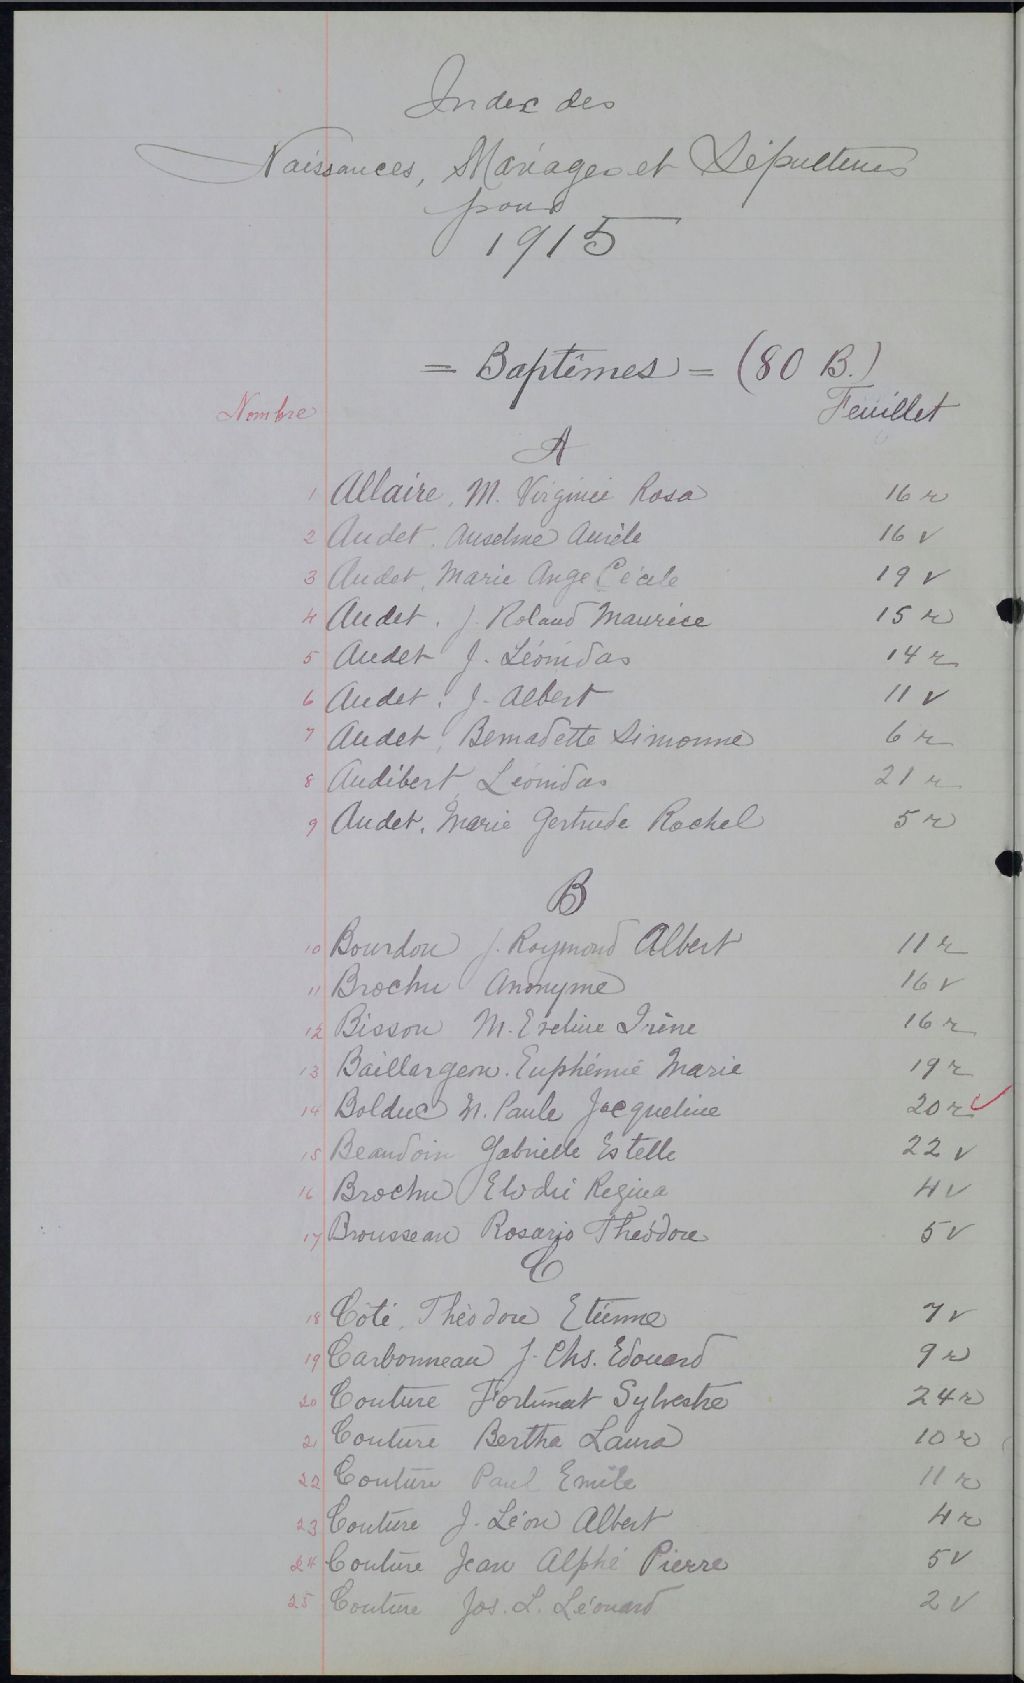 Index des
Naissances, Mariages et Sépultures
pour
1915
= Baptêmes = (80 B.)
Nombre Feuillet
A
1 Allaire, M. Virginie Rosa 16 r
2 Audet, Anselme Aurèle 16 v
3 Audet, Marie Ange Cécile 19 v
4 Audet, J. Roland Maurice 15 r
5 Audet J. Léonidas 14 r
6 Audet, J. Albert 11 v
7 Audet, Bernadette Simonne 6 r
8 Audibert, Léonidas 21 r
9 Audet, Marie Gertrude Rachel 5 r
B
10 Bourdon J. Raymond Albert 11 r
11 Brochu Anonyme 16 v
12 Bisson M. Eveline Irène 16 r
13 Baillargeon. Euphémie Marie 19 r
14 Bolduc M. Paule Jacqueline 20 r ✓
15 Beaudoin Gabrielle Estelle 22 v
16 Brochu Elodie Regina 4 v
17 Brousseau Rosario Théodore 5 v
C
18 Côté, Théodore Etienne 7 v
19 Carbonneau J. Chs. Edouard 9 r
20 Couture Fortunat Sylvestre 24 r
21 Couture Bertha Laura 10 r
22 Couture Paul Emile 11 r
23 Couture J. Léon Albert 4 r
24 Couture Jean Alphé Pierre 5 v
25 Couture Jos. L. Léonard 2 v